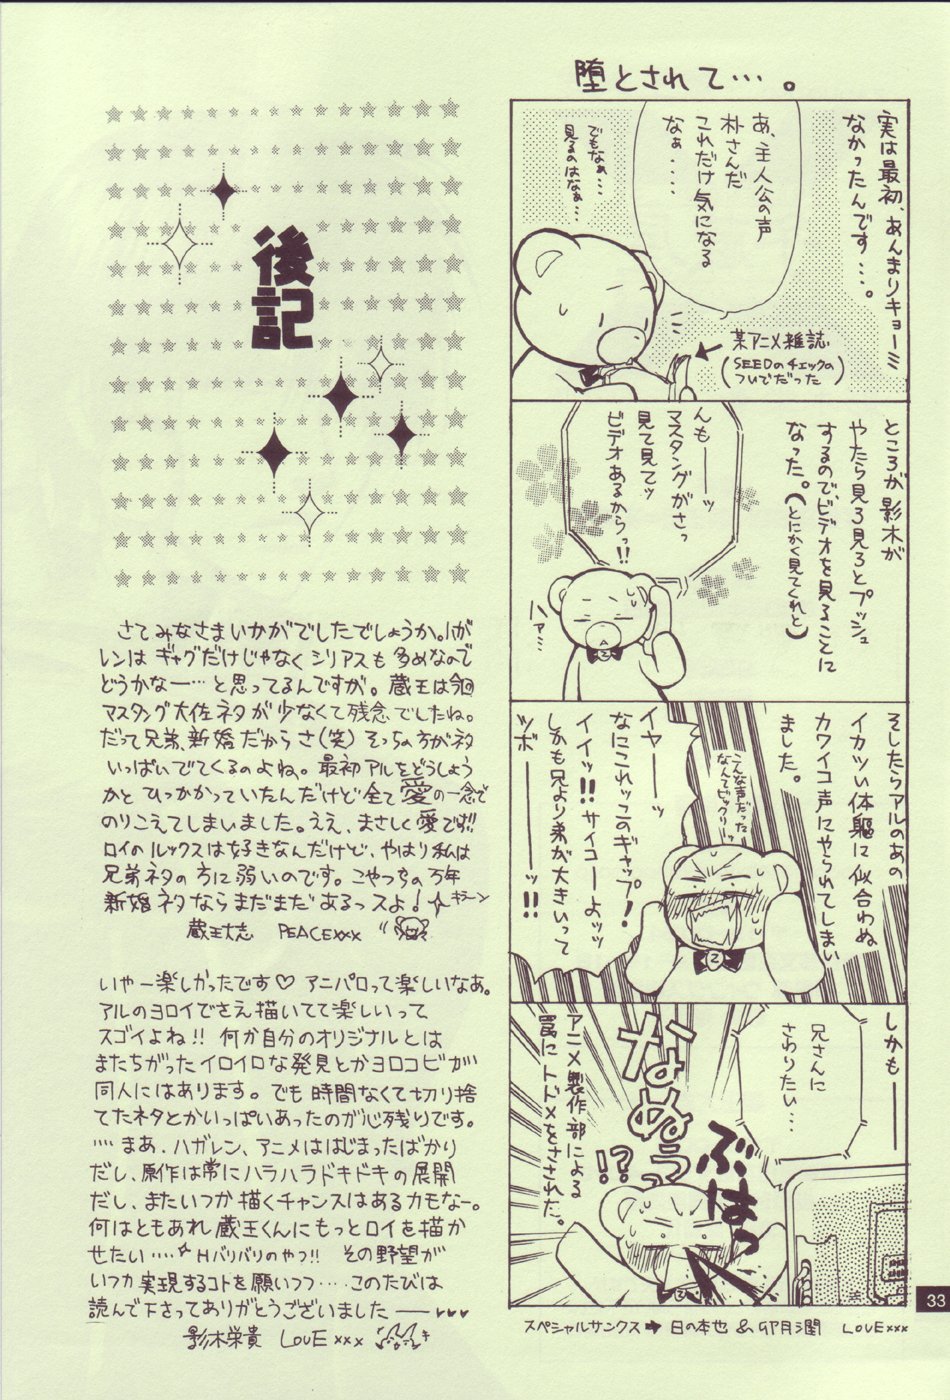 堕とされて…。
実は最初、あんまりキョーミ
なかったんです…。
あ、主人公の声
朴さんだ
これだけ気になる
なぁ‥‥
でもなぁ…
見るのはなぁ…
某アニメ雑誌
(SEEDのチェックの
ついでだった)
ところが影木が
やたら見ろ見ろとプッシュ
するので、ビデオを見ることに
なった。(とにかく見てくれと)
んも——ッ
マスタングがさっ
見て見てッ
ビデオあるからっ!!
ハァ…
そしたらアルのあの
イカツい体軀に似合わぬ
カワイコ声にやられてしまい
ました。
こんな声だった
なんてビックリーッ
イヤ——ッ
なにこれッこのギャップ!
イイッ!!サイコーよッッ
しかも兄より弟が大きいって
ツボ——ッ!!
しかも——
兄さんに
さわりたい…
なぬうっ!?
ぶはっ
アニメ製作部による
罠にトドメをさされた。
スペシャルサンクス➡ 日の本也 & 卯月潤 LOVExxx
33
後記
さてみなさまいかがでしたでしょうか。ハガ
レンは ギャグだけじゃなくシリアスも多めなので
どうかなー…と思ってるんですが。蔵王は今回
マスタング大佐ネタが少なくて残念でしたね。
だって兄弟、新婚だからさ(笑) そっちの方がネタ
いっぱいでてくるのよね。最初アルをどうしよう
かと ひっかかっていたんだけど全て愛の一念で
のりこえてしまいました。ええ、まさしく愛です!!
ロイのルックスは好きなんだけど、やはり私は
兄弟ネタの方に弱いのです。こやつらの万年
新婚ネタならまだまだあるっスよ! キラーン
蔵王大志 PEACExxx
いやー楽しかったです♡ アニパロって楽しいなあ。
アルのヨロイでさえ描いてて楽しいって
スゴイよね!! 何か自分のオリジナルとは
またちがったイロイロな発見とかヨロコビが
同人にはあります。でも時間なくて切り捨
てたネタとかいっぱいあったのが心残りです。
‥‥まあ、ハガレン、アニメははじまったばかり
だし、原作は常にハラハラドキドキの展開
だし、またいつか描くチャンスはあるカモなー。
何はともあれ蔵王くんにもっとロイを描か
せたい‥‥☆Hバリバリのやつ!! その野望が
いつか実現するコトを願いつつ‥‥このたびは
読んで下さってありがとうございました——♥♥♥
影木栄貴 LOVExxx